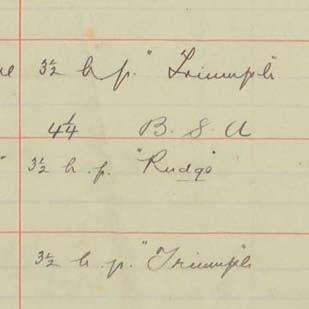 3½ h.p. "Triumph
4¼ B. S. A
" 3½ h.p. "Rudge"
3½ h.p. "Triumph